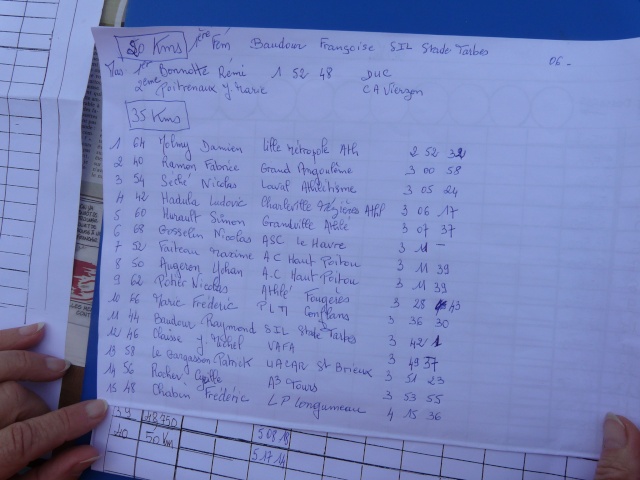 20 Kms 1ère Fém Baudour Françoise SIL Stade Tarbes 06-
Mas 1er Bonnotte Rémi 1 52 48 DUC
2ème Poitrenaux J Marie CA Vierzon
35 Kms
1 64 Molmy Damien Lille Métropole Ath 2 52 32
2 40 Ramon Fabrice Grand Angoulême 3 00 58
3 54 Séché Nicolas Laval Athlétisme 3 05 24
4 42 Hadula Ludovic Charleville Mézières Athl 3 06 17
5 60 Hérault Simon Grandville Athlé 3 07 37
6 68 Gosselin Nicolas ASC Le Havre 3 11 -
7 52 Faiteau Maxime A.C Haut Poitou 3 11 39
8 50 Augeron Yohan A.C Haut Poitou 3 11 39
9 62 Potier Nicolas Athlé Fougères 3 28 43
10 66 Marie Frédéric PLM Conflans 3 36 30
11 44 Baudour Raymond SIL Stade Tarbes 3 42 1
12 46 Claisse J Michel VAFA 3 49 37
13 58 Le Bargasson Patrick UACAR St Brieux 3 51 23
14 56 Rocher A3 Tours 3 53 55
15 48 Chabin Frédéric L P Longjumeau 4 15 36
39 48.750 5 08 18
40 50 Km 5 17 14